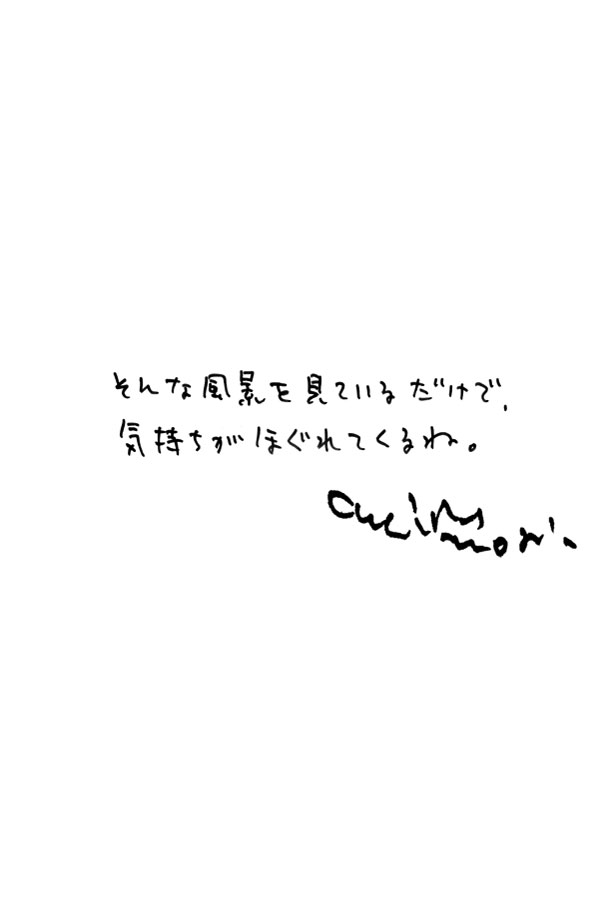 そんな風景を見ているだけで、
気持ちがほぐれてくるね。